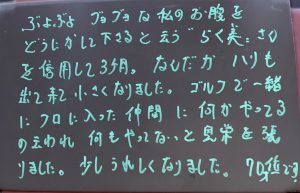 ぶよぶよ ブヨブヨな私のお腹を
どうにかして下さると云う"らく美"さん
を信用して3ケ月。なんだか ハリも
出て来て小さくなりました。ゴルフで一緒
にフロに入った仲間に何かやってる
の言われ 何もやってないっと見栄を張
りました。少しうれしくなりました。70歳です